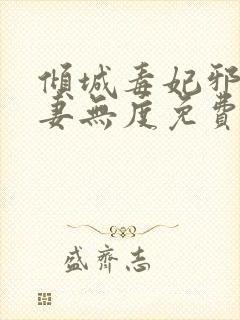 傾城毒妃邪
妻無度免費
盛齊志